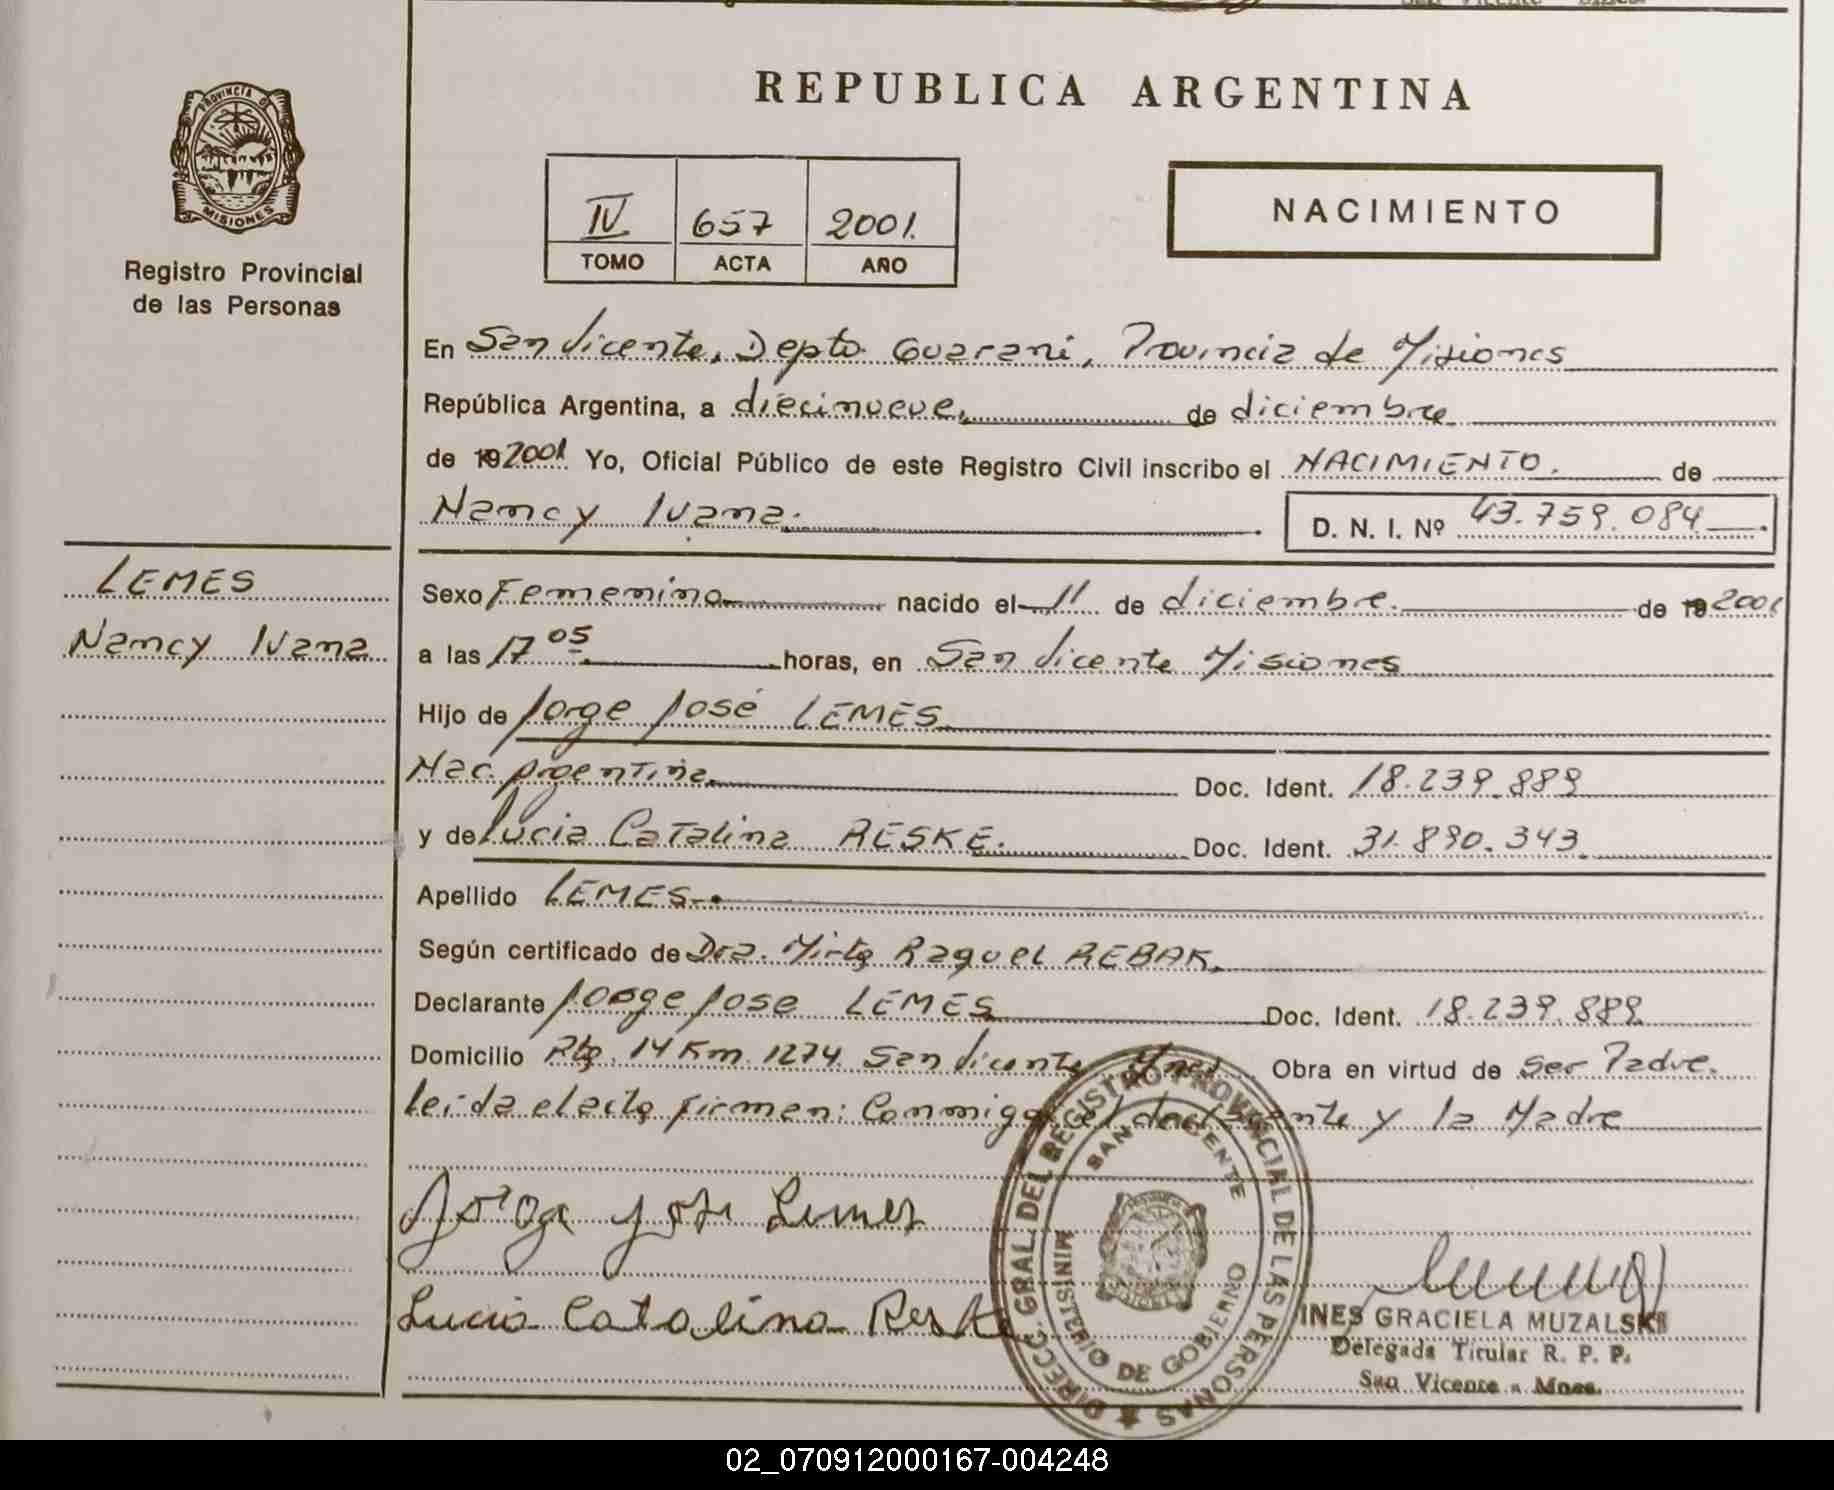 REPUBLICA ARGENTINA
PROVINCIA D
MISIONES
Registro Provincial
de las Personas
IV 657 2001.
TOMO ACTA AÑO
NACIMIENTO
En San Vicente, Depto Guarani, Provincia de Misiones
República Argentina, a diecinueve, de diciembre
de 19 2001. Yo, Oficial Público de este Registro Civil inscribo el NACIMIENTO. de
Nancy Ivana. D. N. I. Nº 43.759.084
LEMES
Nancy Ivana
Sexo Femenino nacido el 11 de diciembre. de 19 2001
a las 17 05 horas, en San Vicente Misiones
Hijo de Jorge José LEMES
Nac. Argentina Doc. Ident. 18.239.889
y de Lucia Catalina RESKE. Doc. Ident. 31.890.343.
Apellido LEMES.
Según certificado de Dra. Mirta Raquel REBAK.
Declarante Jorge Jose LEMES Doc. Ident. 18.239.889
Domicilio Rta. 14 Km. 1274. San Vicente Mnes. Obra en virtud de ser Padre.
leida el acta firman: Conmigo el declarante y la Madre
Jorge Jose Lemes
Lucia Catalina Reske
DIRECC. GRAL. DEL REGISTRO PROVINCIAL DE LAS PERSONAS
SAN VICENTE
MINISTERIO DE GOBIERNO
INES GRACIELA MUZALSKI
Delegada Titular R. P. P.
San Vicente - Mnes.
02_070912000167-004248